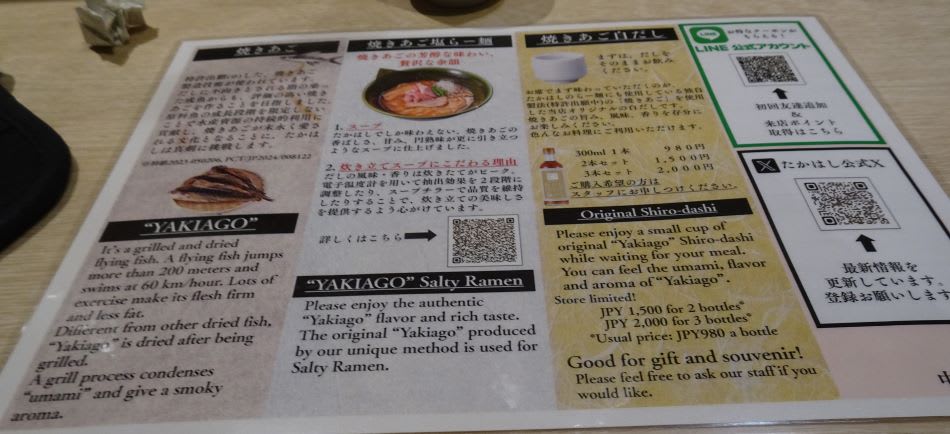 焼きあご
特許出願
※特願2023-050206, PCT/JP2024/008122
"YAKIAGO"
It's a grilled and dried
flying fish. A flying fish jumps
more than 200 meters and
swims at 60 km/hour. Lots of
exercise make its flesh firm
and less fat.
Different from other dried fish,
"Yakiago" is dried after being
grilled.
A grill process condenses
"umami" and give a smoky
aroma.
焼きあご塩らー麺
焼きあごの芳醇な味わい、
贅沢な余韻
1. スープ
たかはしでしか味わえない、焼きあごの
香ばしさ、甘み、円熟味が更に引き立つ
ようなスープに仕上げました。
2. 炊き立てスープにこだわる理由
だしの風味・香りは炊きたてがピーク。
電子温度計を用いて抽出効果を2段階に
調整したり、スープチラーで品質を維持
したりすることで、炊き立ての美味しさ
を提供するよう心がけています。
詳しくはこちら
"YAKIAGO" Salty Ramen
Please enjoy the authentic
"Yakiago" flavor and rich taste.
The original "Yakiago" produced
by our unique method is used for
Salty Ramen.
焼きあご白だし
まずは、だしを
そのままお飲み
ください。
お席でまず味わっていただくのが、
たかはしのらー麺にも使用している独自
製法(特許出願中)の「焼きあご」を使用
した当店オリジナルの白だしです。
焼きあごの旨み、風味、香りを存分に
お楽しみください。
色んなお料理にご利用いただけます。
300ml 1本 980円
2本セット 1,500円
3本セット 2,000円
ご購入希望の方は
スタッフにお申しつけください。
Original Shiro-dashi
Please enjoy a small cup of
original "Yakiago" Shiro-dashi
while waiting for your meal.
You can feel the umami, flavor
and aroma of "Yakiago".
Store limited!
JPY 1,500 for 2 bottles*
JPY 2,000 for 3 bottles*
*Usual price: JPY980 a bottle
Good for gift and souvenir!
Please feel free to ask our staff if you
would like.
LINE
お得なクーポンが
もらえる!
LINE 公式アカウント
初回友達追加
&
来店ポイント
取得はこちら
X たかはし公式X
最新情報を
更新しています。
登録お願いします